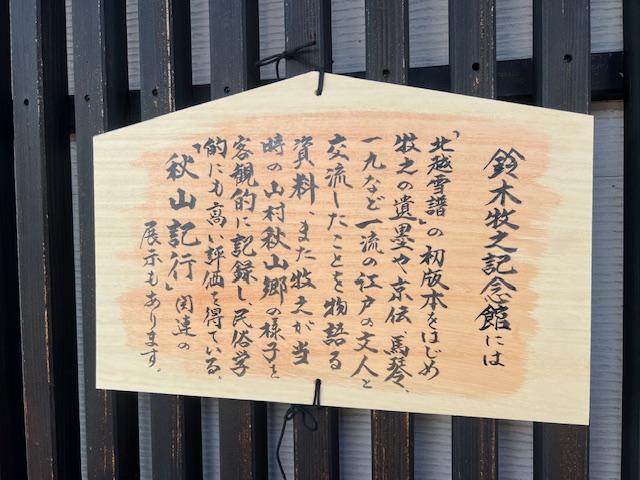 鈴木牧之記念館には
「北越雪譜」の初版本をはじめ
牧之の遺墨や京伝、馬琴、
一九など一流の江戸の文人と
交流したことを物語る
資料、また牧之が当
時の山村秋山郷の様子を
客観的に記録し、民俗学
的にも高い評価を得ている、
「秋山記行」関連の
展示もあります。